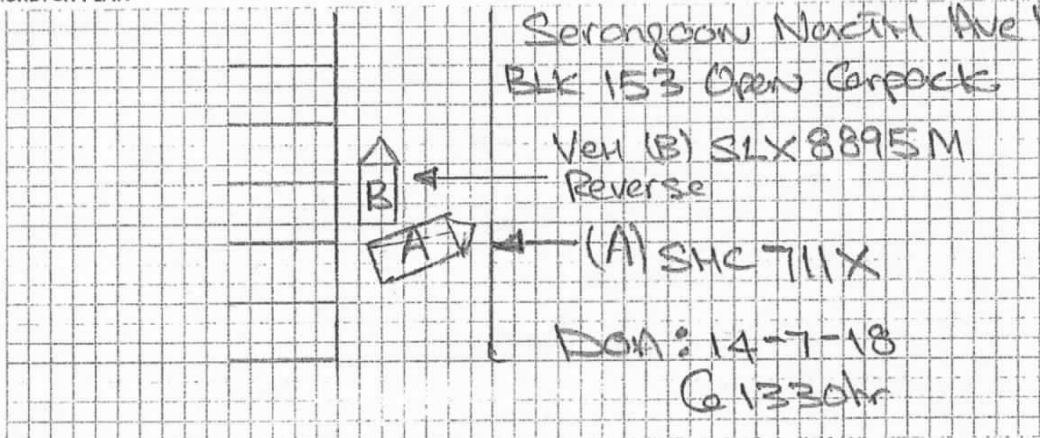 Serangoon North Ave 1
BLK 153 Open Carpark
Veh (B) SLX 8895M
Reverse
B
A
(A) SHC 711X
DOA: 14-7-18
@ 1330hr